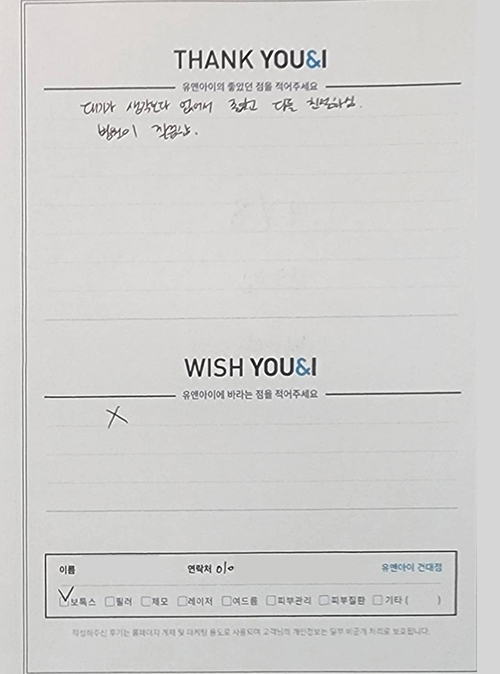 THANK YOU&I
유앤아이의 좋았던 점을 적어주세요
대기가 생각보다 없어서 좋았고 다들 친절하심.
병원이 깔끔함.
WISH YOU&I
유앤아이에 바라는 점을 적어주세요
X
이름 연락처 010 유앤아이 건대점
보톡스 필러 제모 레이저 여드름 피부관리 피부질환 기타 ( )
작성해주신 후기는 홈페이지 게재 및 마케팅 용도로 사용되며 고객님의 개인정보는 일부 비공개 처리로 보호됩니다.